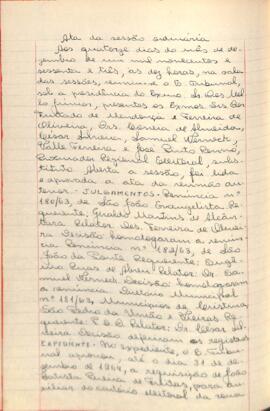 Ata da sessão ordinária
Aos quatorze dias do mês de de-
zembro de um mil novecentos e
sessenta e três, às dez horas, na sala
das sessões, reuniu-se o E. Tribunal,
sob a presidência do Exmo. Sr. Des.
presentes os Exmos. Srs. Des.
Furtado de Mendonça e Ferreira de
Oliveira, Drs. Corrêa de Almeida,
Cesar Silveira, Samuel Werneck,
Valle Ferreira e José Pinto
Procurador Regional Eleitoral, subs-
tituto. Aberta a sessão, foi lida
e aprovada a ata da reunião an-
terior. - JULGAMENTOS - Renúncia nº
180/63, de São João Evangelista. Re-
querente: Geraldo Martins de
Relator: Des. Ferreira de Olivei-
ra. Decisão: homologaram a renún-
cia. Renúncia nº 182/63, de São
João da Ponte. Requerente:
de Abreu. Relator: Dr. Sa-
muel Werneck. Decisão: homologaram
a renúncia. Diretório Municipal
nº 181/63, Municípios de Cristina,
São Pedro da União e
querente: P. Relator: Dr. Cesar Sil-
veira. Decisão: deferiram os registros.
EXPEDIENTE - No expediente, o E. Tribu-
nal aprovou, até o dia 31 de de-
zembro de 1964, a requisição de João
Batista Pereira de Freitas, para au-
xiliar do cartório eleitoral da zona